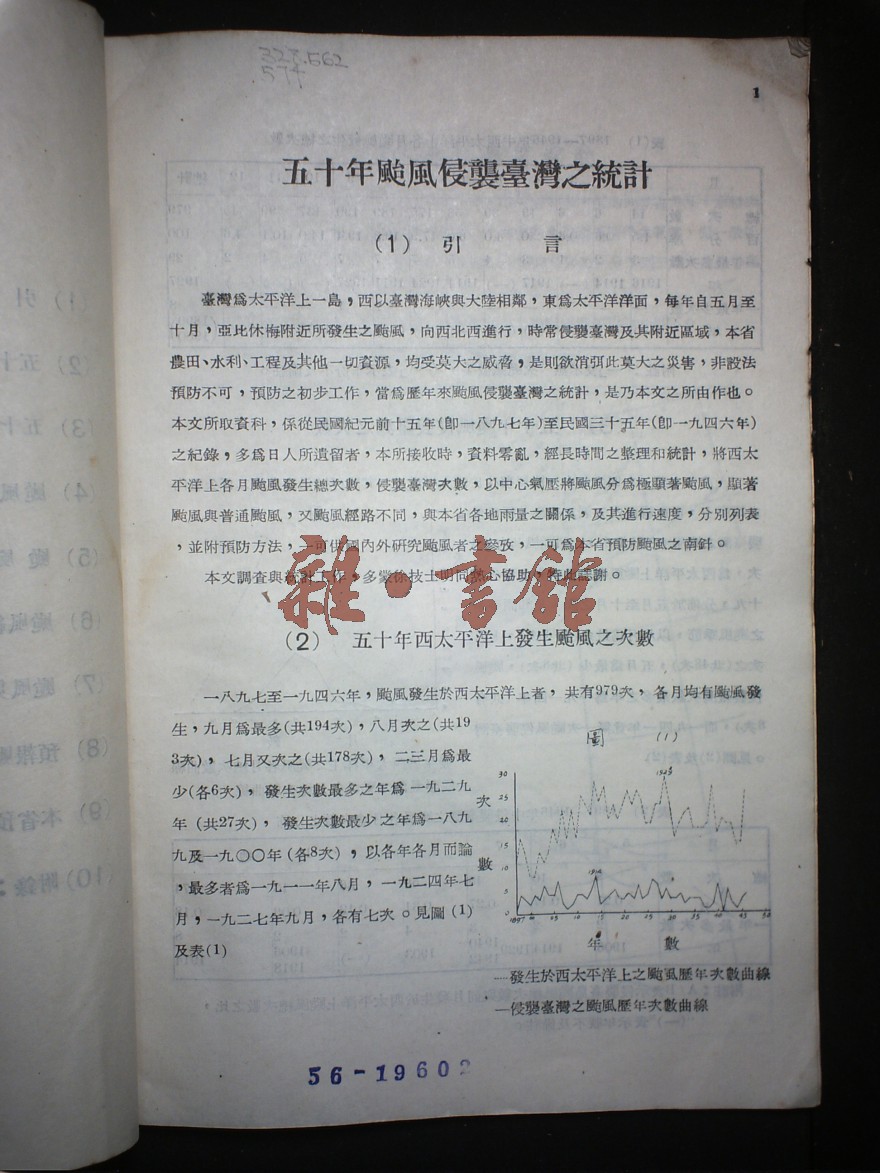 323.562
574
1
五十年颱風侵襲臺灣之統計
(1) 引 言
臺灣爲太平洋上一島，西以臺灣海峽與大陸相鄰，東爲太平洋洋面，每年自五月至
十月，亞比休梅附近所發生之颱風，向西北西進行，時常侵襲臺灣及其附近區域，本省
農田、水利、工程及其他一切資源，均受莫大之威脅，是則欲消弭此莫大之災害，非設法
預防不可，預防之初步工作，當爲歷年來颱風侵襲臺灣之統計，是乃本文之所由作也。
本文所取資料，係從民國紀元前十五年(卽一八九七年)至民國三十五年(卽一九四六年)
之紀錄，多爲日人所遺留者，本所接收時，資料零亂，經長時間之整理和統計，將西太
平洋上各月颱風發生總次數，侵襲臺灣次數，以中心氣壓將颱風分爲極顯著颱風，顯著
颱風與普通颱風，又颱風經路不同，與本省各地雨量之關係，及其進行速度，分別列表
，並附預防方法，一可供國內外研究颱風者之參攷，一可爲本省預防颱風之南針。
本文調查與統計工作，多蒙徐技士明同熱心協助，特此誌謝。
雜·書館
(2) 五十年西太平洋上發生颱風之次數
一八九七至一九四六年，颱風發生於西太平洋上者，共有979次，各月均有颱風發
生，九月爲最多(共194次)，八月次之(共19
3次)，七月又次之(共178次)，二三月爲最
少(各6次)，發生次數最多之年爲一九二九
年(共27次)，發生次數最少之年爲一八九
九及一九〇〇年(各8次)，以各年各月而論
，最多者爲一九一一年八月，一九二四年七
月，一九二七年九月，各有七次。見圖(1)
及表(1)
圖 (1)
次
數
30
25
20
15
10
5
0
1897 10 15 20 25 30 35 40 45 50
年 數
┄發生於西太平洋上之颱風歷年次數曲線
—侵襲臺灣之颱風歷年次數曲線
56-19602
(1) 引
(2) 五十
(3) 五十
(4) 颱風
(5) 颱
(6) 颱風
(7) 颱風
(8) 預報
(9) 本省
(10) 附錄